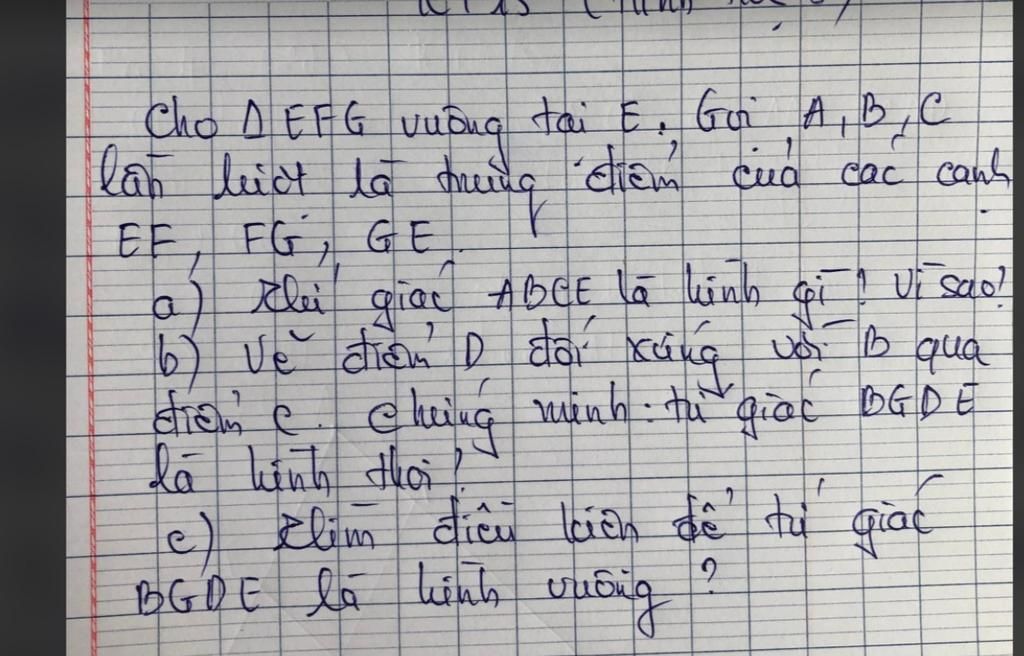 Cho Δ EFG vuông tại E. Gọi A, B, C
lần lượt là trung điểm của các cạnh
EF, FG, GE.
a) Tứ giác ABCE là hình gì? Vì sao?
b) Vẽ điểm D đối xứng với B qua
điểm C. Chứng minh tứ giác BGDE
là hình thoi?
c) Tìm điều kiện để tứ giác
BGDE là hình vuông?